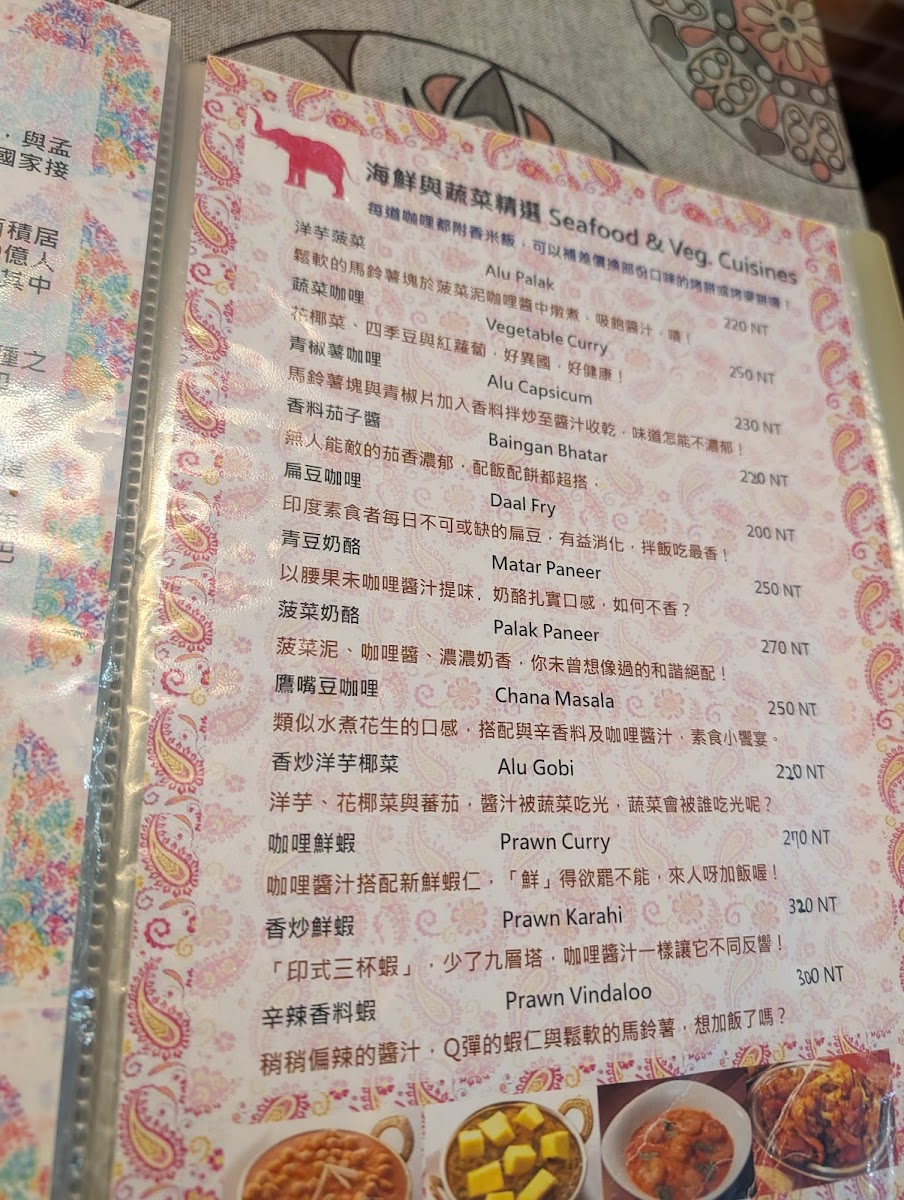 ，與孟
國家接
積居
億人
其中
種之
海鮮與蔬菜精選 Seafood & Veg. Cuisines
每道咖哩都附香米飯，可以補差價換部份口味的烤餅或烤麥餅唷！
洋芋菠菜 Alu Palak 220 NT
鬆軟的馬鈴薯塊於菠菜泥咖哩醬中燉煮，吸飽醬汁，嘖！
蔬菜咖哩 Vegetable Curry 250 NT
花椰菜、四季豆與紅蘿蔔，好異國，好健康！
青椒薯咖哩 Alu Capsicum 230 NT
馬鈴薯塊與青椒片加入香料拌炒至醬汁收乾，味道怎能不濃郁！
香料茄子醬 Baingan Bhatar 220 NT
無人能敵的茄香濃郁，配飯配餅都超搭，
扁豆咖哩 Daal Fry 200 NT
印度素食者每日不可或缺的扁豆，有益消化，拌飯吃最香！
青豆奶酪 Matar Paneer 250 NT
以腰果未咖哩醬汁提味，奶酪扎實口感，如何不香？
菠菜奶酪 Palak Paneer 270 NT
菠菜泥、咖哩醬、濃濃奶香，你未曾想像過的和諧絕配！
鷹嘴豆咖哩 Chana Masala 250 NT
類似水煮花生的口感，搭配與辛香料及咖哩醬汁，素食小饗宴。
香炒洋芋椰菜 Alu Gobi 220 NT
洋芋、花椰菜與蕃茄，醬汁被蔬菜吃光，蔬菜會被誰吃光呢？
咖哩鮮蝦 Prawn Curry 270 NT
咖哩醬汁搭配新鮮蝦仁，「鮮」得欲罷不能，來人呀加飯喔！
香炒鮮蝦 Prawn Karahi 320 NT
「印式三杯蝦」，少了九層塔，咖哩醬汁一樣讓它不同反響！
辛辣香料蝦 Prawn Vindaloo 300 NT
稍稍偏辣的醬汁，Q彈的蝦仁與鬆軟的馬鈴薯，想加飯了嗎？